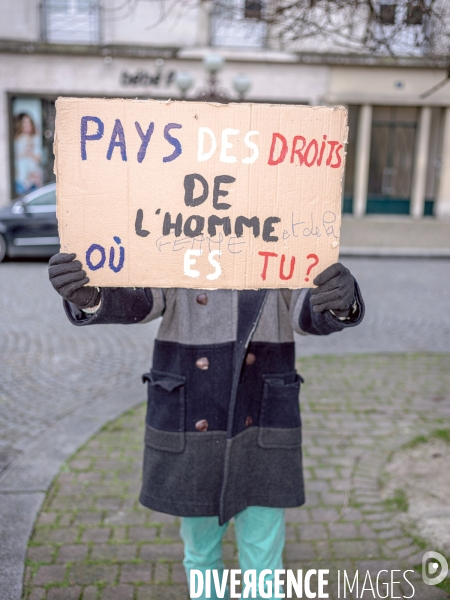 bébé
PAYS DES DROITS
DE
L'HOMME et de la
FEMME
OÙ ES TU ?
DIVERGENCE IMAGES